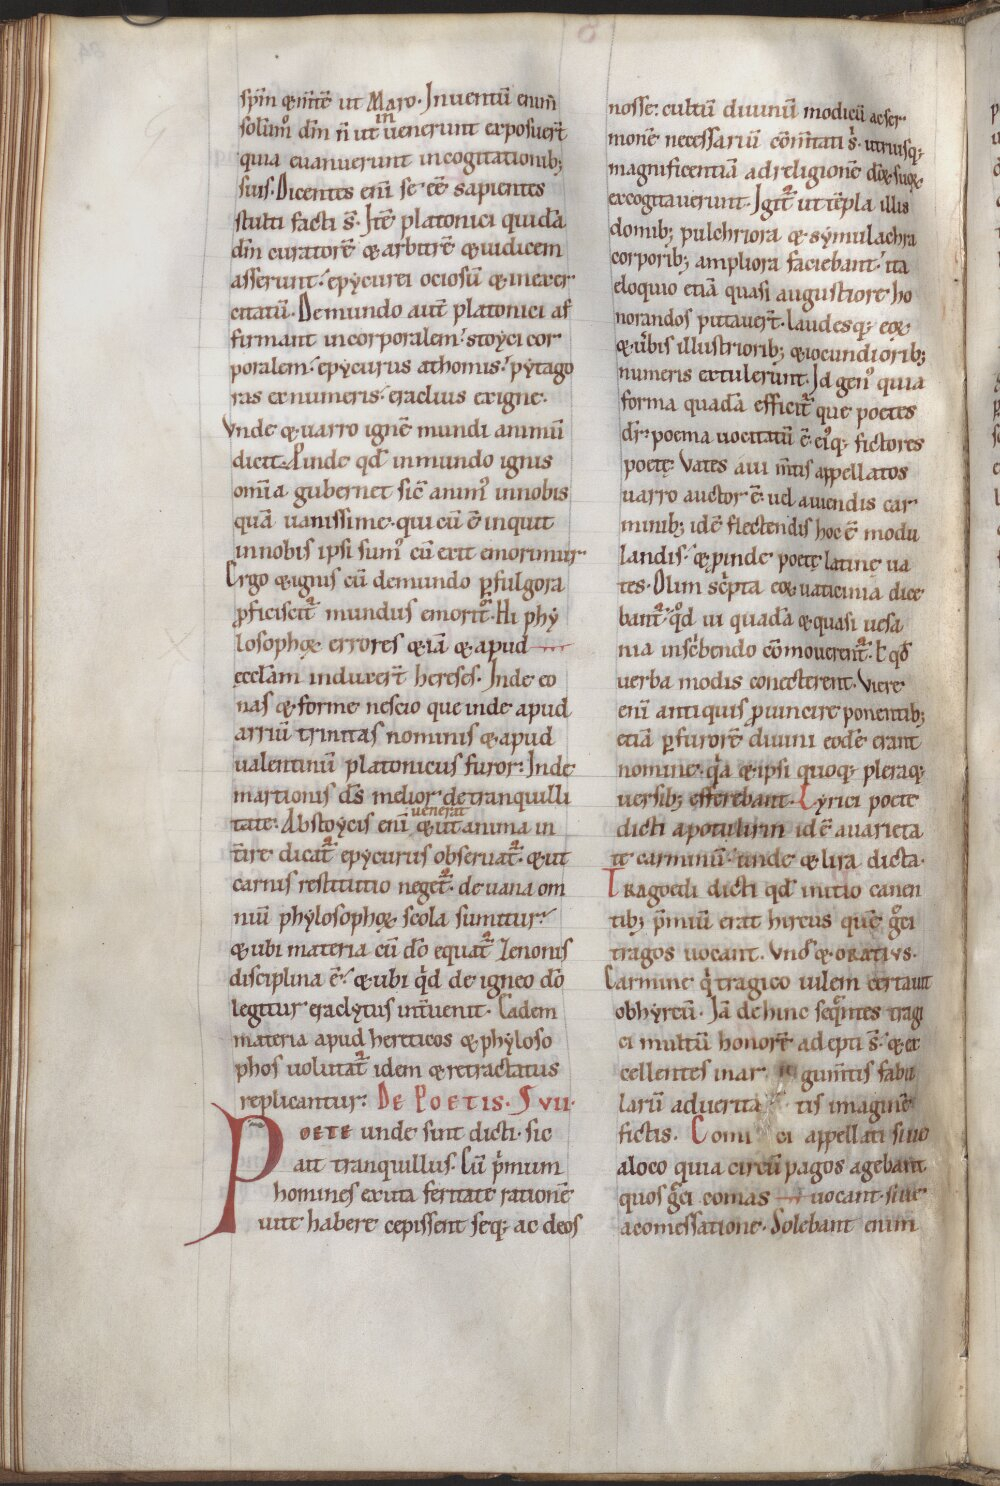 sp̄m & m̄tē ut Maro. Inuentū enim̄
solum᷒ dm̄ n̄ ut inuenerunt exposuer̄t
quia euanuerunt incogitationib;
suis. Dicentes eni se eē sapientes
stulti facti s̄. Itē platonici quidā
dm̄ curatorē & arbitrē & iudicem
asserunt. epycurei ociosū & inexer
citatū. Demundo aut̄ platonici af
firmant incorporalem. stoyci cor
poralem. epycurus athomis. pytago
ras exnumeris. eraclius exigne.
Vnde & uarro ignē mundi animū
dicit. Pinde qd̄ inmundo ignis
om̄ia gubernet sic̄ anim᷒ innobis
quā uanissime. qui cū ē inquit
innobis ipsi sum᷒ cū exit emorimur
Ergo & ignis cū demundo p̲fulgora
p̲ficiscit᷑ mundus emorit᷑. Hi phy
losophoꝝ errores & iā & apud
ęcclam̄ induxer̄t hereses. Inde eo
nas & forme nescio que inde apud
arriū trinitas nominis & apud
ualentinū platonicus furor. Inde
martionis ds̄ melior detranquilli
tate. Abstoycis eni uenerat & ut anima in
t̄ire dicat᷑ epycurus obseruat᷑. & ut
carnis restititio neget᷑. deuana om
niū phylosophoꝝ scola sumitur.
& ubi materia cū dō equat᷑ Zenonis
disciplina ē. & ubi qⁱd de igneo dō
legitur eraclytus int̄uenit. Eadem
materia apud hereticos & phyloso
phos uolutat᷑ idem & retractatus
replicantur. De Poetis. S VII.
Poete unde sint dicti. sic
ait tranquillus. Cū pⁱmum
homines exuta feritate rationē
uite habere cepissent seq; ac deos
nosse. cultū diuinū modicū ac ser
monē necessariū cōm̄tati sⁱ. utriusq;
magnificentiā adreligionē dōꝝ suoꝝ
excogitauerunt. Igit᷑ ut tēpla illis
domib; pulchriora & symulachra
corporib; ampliora faciebant. ita
eloquio etiā quasi augustiore ho
norandos putauer̄t. laudesq; eoꝝ
& ūbis illustriorib; & iocundiorib;
numeris extulerunt. Id gen᷒ quia
forma quadā efficit᷑ que poetes
dr̄. poema uocitatū ē. ei᷒q; fictores
poetę. Vates aui m̄tis appellatos
uarro auctor ē. uel auiendis car
minib; idē flectendis hoc ē modu
landis. & p̲inde poetę latine ua
tes. Olim scⁱpta eoꝝ uaticinia dice
bant᷑. qᵒd ui quadā & quasi uesa
nia inscⁱbendo cōmouerent᷑. ł qᵒd
uerba modis conecterent. Viere
eni antiquis p̲uincire ponentib;
etiā p̲furorē diuini eodē erant
nomine. qᵃ & ipsi quoq; pleraq;
uersib; efferebant. Lyrici poete
dicti apotulirin idē auarieta
te carminū. unde & lira dicta.
Tragoedi dicti qd̄ initio canen
tib; p̄miū erat hircus quē gᵉci
tragos uocant. Vnd̄ & Oratius.
Carmine qⁱ tragico uilem certauit
obhyrcū. Iā dehinc seqⁿtes tragi
ci multū honorē adepti s̄. & ex
cellentes inar gum̄tis fabu
larū aduerita tis imaginē
fictis. Comi ci appellati siue
aloco quia circū pagos agebant
quos gᵉci comas uocant. siue
acomessatione. Solebant enim̄